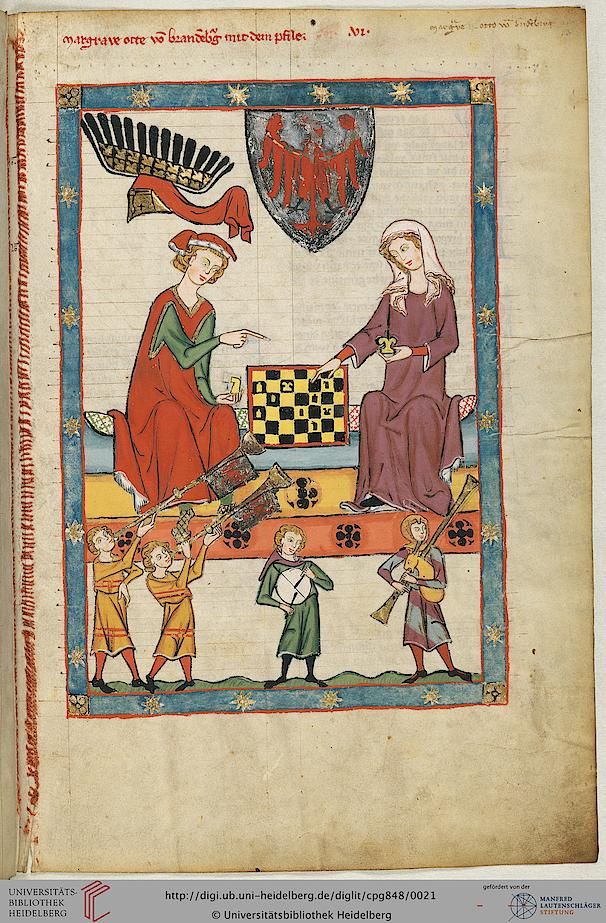 margraue otte vō brandēb̄g mit dem pfile. vi.
UNIVERSITÄTS-
BIBLIOTHEK
HEIDELBERG
http://digi.ub.uni-heidelberg.de/diglit/cpg848/0021
© Universitätsbibliothek Heidelberg
gefördert von der
MANFRED
LAUTENSCHLÄGER
STIFTUNG